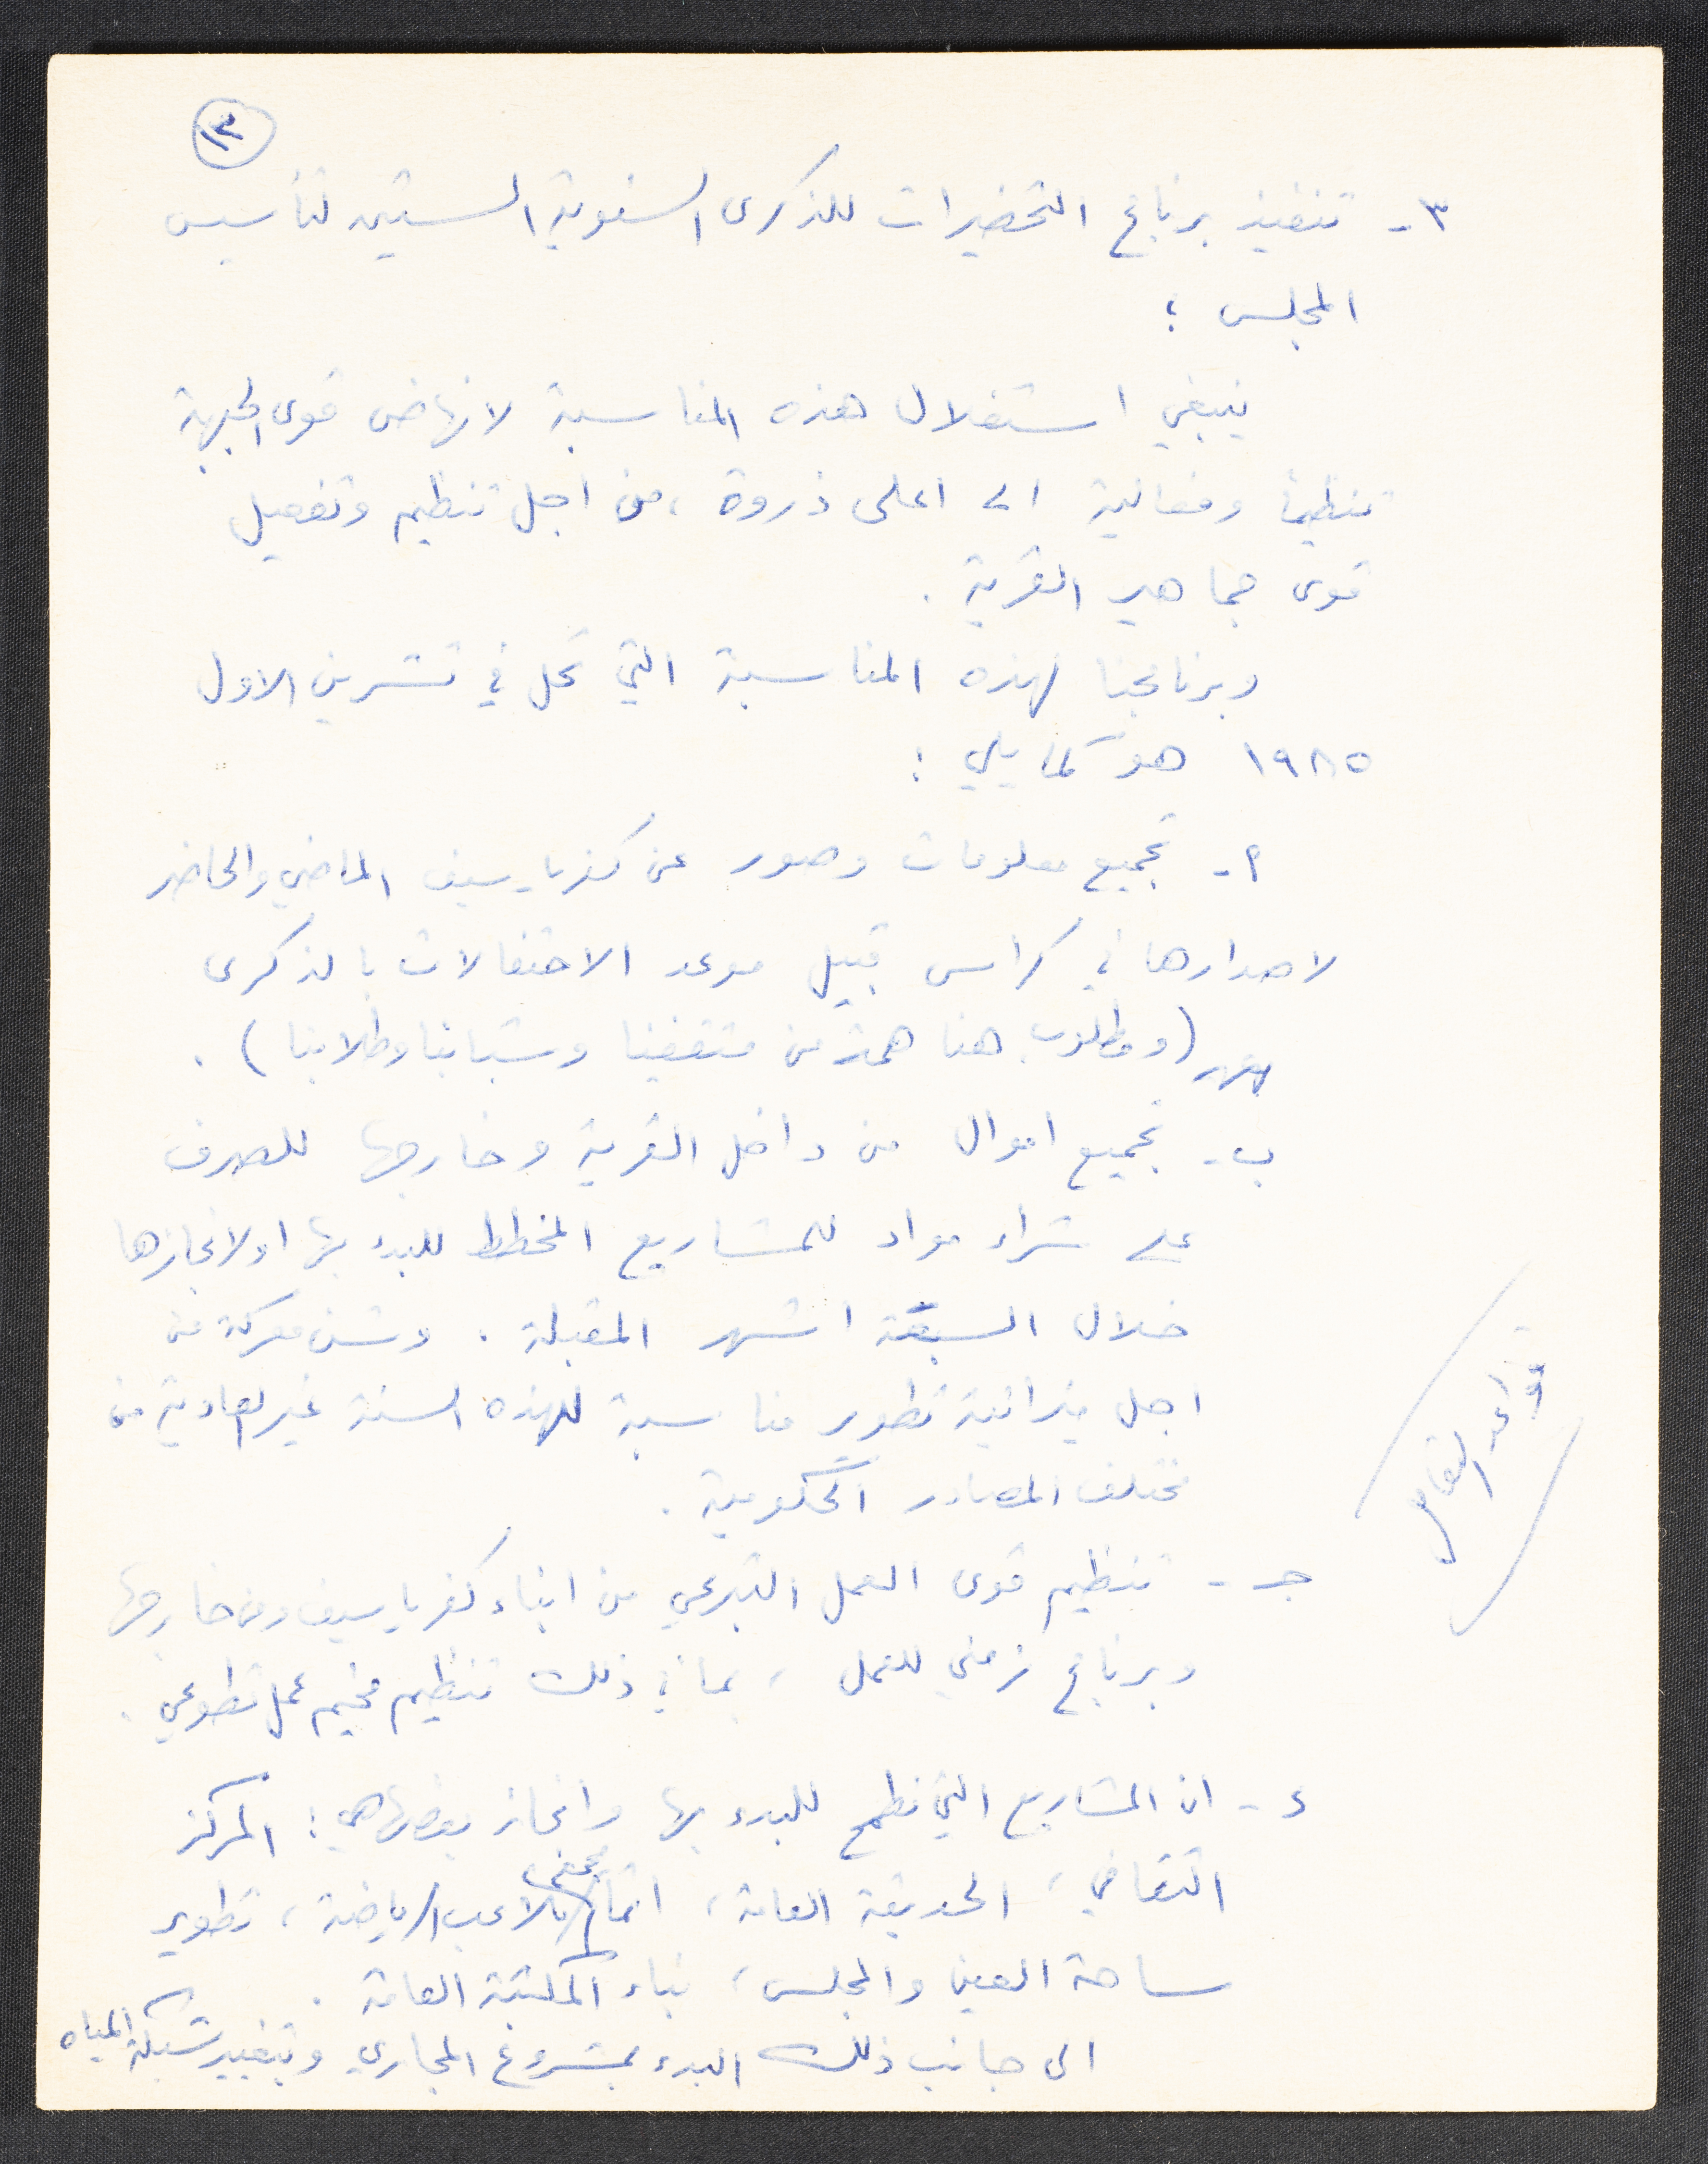 ١٣
٣- تنفيذ برنامج التحضيرات للذكرى السنوية الستين لتأسيس
المجلس :
ينبغي استغلال هذه المناسبة لانهاض قوى الجبهة
تنظيماً وفعالية الى اعلى ذروة ، من اجل تنظيم وتفعيل
قوى جماهير القرية .
وبرنامجنا لهذه المناسبة التي تحل في تشرين الاول
١٩٨٥ هو كما يلي :
أ- تجميع معلومات وصور عن كفرياسيف الماضي والحاضر
لاصدارها في كراس قبيل موعد الاحتفالات بالذكرى
(ومطلوب هنا همة من مثقفينا وشبابنا وطلابنا) .
ب- تجميع اموال من داخل القرية وخارجها للصرف
على شراء مواد للمشاريع المخطط للبدء بها او لانجازها
خلال السبعة اشهر المقبلة . وشن معركة من
اجل ميزانية تطوير مناسبة لهذه السنة غير العادية من
مختلف المصادر الحكومية .
جـ- تنظيم قوى العمل التبرعي من ابناء كفرياسيف ومن خارجها
وبرنامج زمني للعمل ، بما في ذلك تنظيم مخيم عمل تطوعي .
د- ان المشاريع التي نطمح للبدء بها وانجاز بعضها هي : المركز
الثقافي ، الحديقة العامة ، اتمام ملاعب الرياضة ، تطوير
ساحة العين والمجلس ، بناء المكتبة العامة .
الى جانب ذلك البدء بمشروع المجاري وبتغيير شبكة المياه